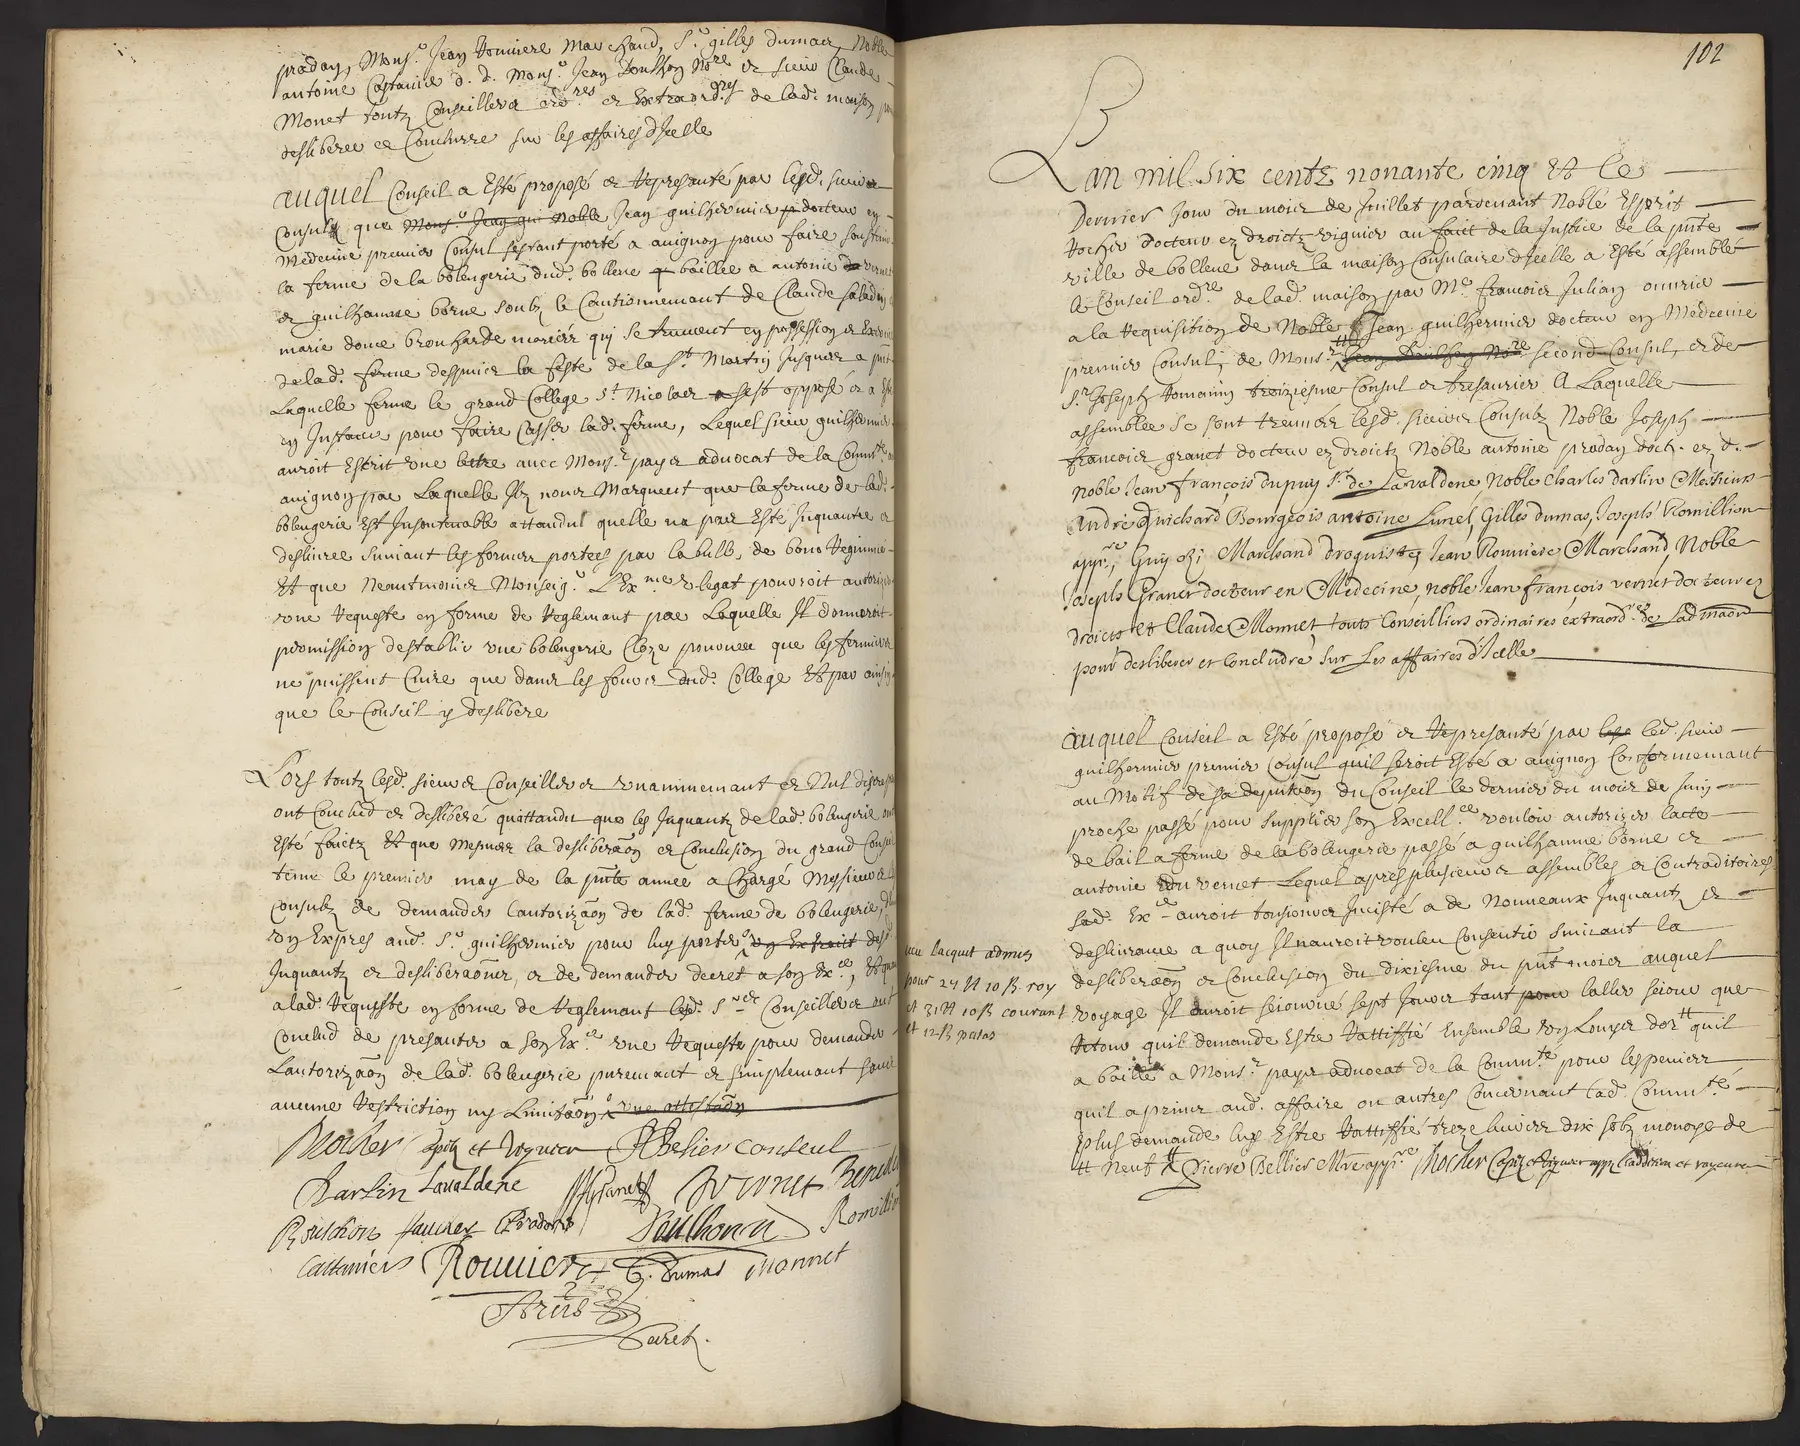 pradan, Mons.r Jean Romiere Marchand, S.r gilles dumas, Noble
antoine Castanier d. d. Mons.r Jean Boulhon No.re et sieur Claude
Monet toutz Conseillers ord.res et Extraord.res de lad. maison pour
deslibérer et Conclurre sur les affaires d'Icelle
auquel Conseil a Esté proposé et Represanté par lesd. sieurs
Consulz que Mons.r Jean gui noble Jean guilhermier docteur en
Médecine premier Consul s'estant porté a auignon pour faire soustenir
la ferme de la bolengerie dud. bollene baillée a antoine du vernet
et guilhaume borne soubz le Cautionnement de Claude Saladin
marie dome brouharde mariés qui se truuent en possession et
delad. ferme despuis la feste de la S.t Martin Jusques a p.nt
Laquelle ferme le grand College S.t Nicolas sest opposé et a Esté
en Instance pour faire Casser lad. ferme, Lequel sieur guilhermier
auroit Escrit vne lettre auec Mons.r payer aduocat de la Commté
auignon par Laquelle Ilz nous Marquent que la ferme de lad.
bolengerie Est Insoutenable attandu quelle na pas Esté Inquantée et
desliurée suiuant les formes portées par la bulle de bono Regimine
Et que Neantmoins Monseig.r L'Ex.me v.legat pouuroit autorizer
vne Requeste en forme de Reglemant par Laquelle Il donneroit
permission destablir vne bolengerie Cloze pourueu que les fermiers
ne puissent Cuire que dans les fours dud. College Et par ainsin
que le Conseil y deslibere
Lors toutz lesd. sieurs Conseillers vnanimemant et Nul discrepant
ont Conclud et deslibéré quattandu que les Inquantz de lad. bolengerie ont
Esté faictz Et que Mesmes la desliberaõn et Conclusion du grand Conseil
tenu le premier may de la p.nte année a Chargé Messieurs les
Consulz de demander lautorizaõn de lad. ferme de bolengerie,
vn Expres aud. S.r guilhermier pour luy porter vn Extraict des
Inquantz et desliberaõns, et de demander decret a son Ex.ce, Et quant
a lad. Requeste en forme de Reglemant lesd. S.rs Conseillers ont
Conclud de presanter a son Ex.ce vne Requeste pour demander
Lautorizaõn de lad. bolengerie puremant et simplemant sans
aucune Restriction ny Limitaõn vne attestaõn
Rocher Cap.ne et viguier Bellier Conseul
Darlin Laualdene Granet Vernet
Rouschon Pradons Boulhon Romillion
Castaniers Roumier G. Dumas Monnet
102
Lan mil six centz nonante cinq et le
Dernier Jour du mois de Juillet pardeuant Noble Esprit
Rocher docteur ez droictz viguier au fait de la Justice de la p.nte
ville de bollene dans la maison Consulaire d'Icelle a Esté assemblé
le Conseil ord.re de lad. maison par M.e francois Julian ouurier
a la Requisition de Noble Jean guilhermier docteur en Medecine
premier Consul, de Mons.r Jean Boulhon No.re second Consul, et de
S.r Joseph Romanin troiziesme Consul et tresaurier A Laquelle
assemblée se sont treuués lesd. sieurs Consulz Noble Joseph
francois granet docteur ez droictz Noble antoine pradan doct. ez d.
Noble Jean françois Dupuy S.r de Lavaldene Noble Charles Darlin Messieurs
André Guichard Bourgeois antoine Lunel, Gilles Dumas, Joseph Romillion
app.re, Guy Marchand Droguiste, Jean Romiere Marchand, Noble
Joseph Granet docteur en Medecine, noble Jean françois vernet docteur ez
droicts et Claude Monnet, touts Conseilliers ordinaires extraord.res de Lad maõn
pour deslibérer et Concludre sur Les affaires d'Icelle
auquel Conseil a Esté proposé et Represanté par led. sieur
guilhermier premier Consul quil seroit Esté a auignon Conformemant
au Motif de sa deputaõn du Conseil le dernier du mois de Juin
proche passé pour supplier son Excell.ce vouloir autorizer lacte
de bail a ferme de la bolengerie passé a guilhaume borne et
antoine du vernet Lequel apres plusieurs assemblées et Contraditoires
sad. Ex.ce auroit tousiours Insisté a de Nouueaux Inquantz et
desliurance a quoy Il nauroit voulu Consentir suiuant la
desliberaõn et Conclusion du dixiesme du p.nt mois auquel
voyage Il auroit seiourné sept Jours tant pour laller seiour que
Retour quil demande Estre Rattiffié Ensemble vn Louys dor quil
a baillé a Mons.r payer aduocat de la Comm.té pour les peines
quil a prins aud. affaire ou autres Concernant lad. Comm.té
plus demande luy Estre Rattiffié treze liures dix solz monoye de
Neuf Pierre Bellier M.re app.re Rocher Cap.ne et viguier
Lacquit admis
pour 27 tt 10 ß roy
et 31 tt 10 ß courant
et 12 ß patas